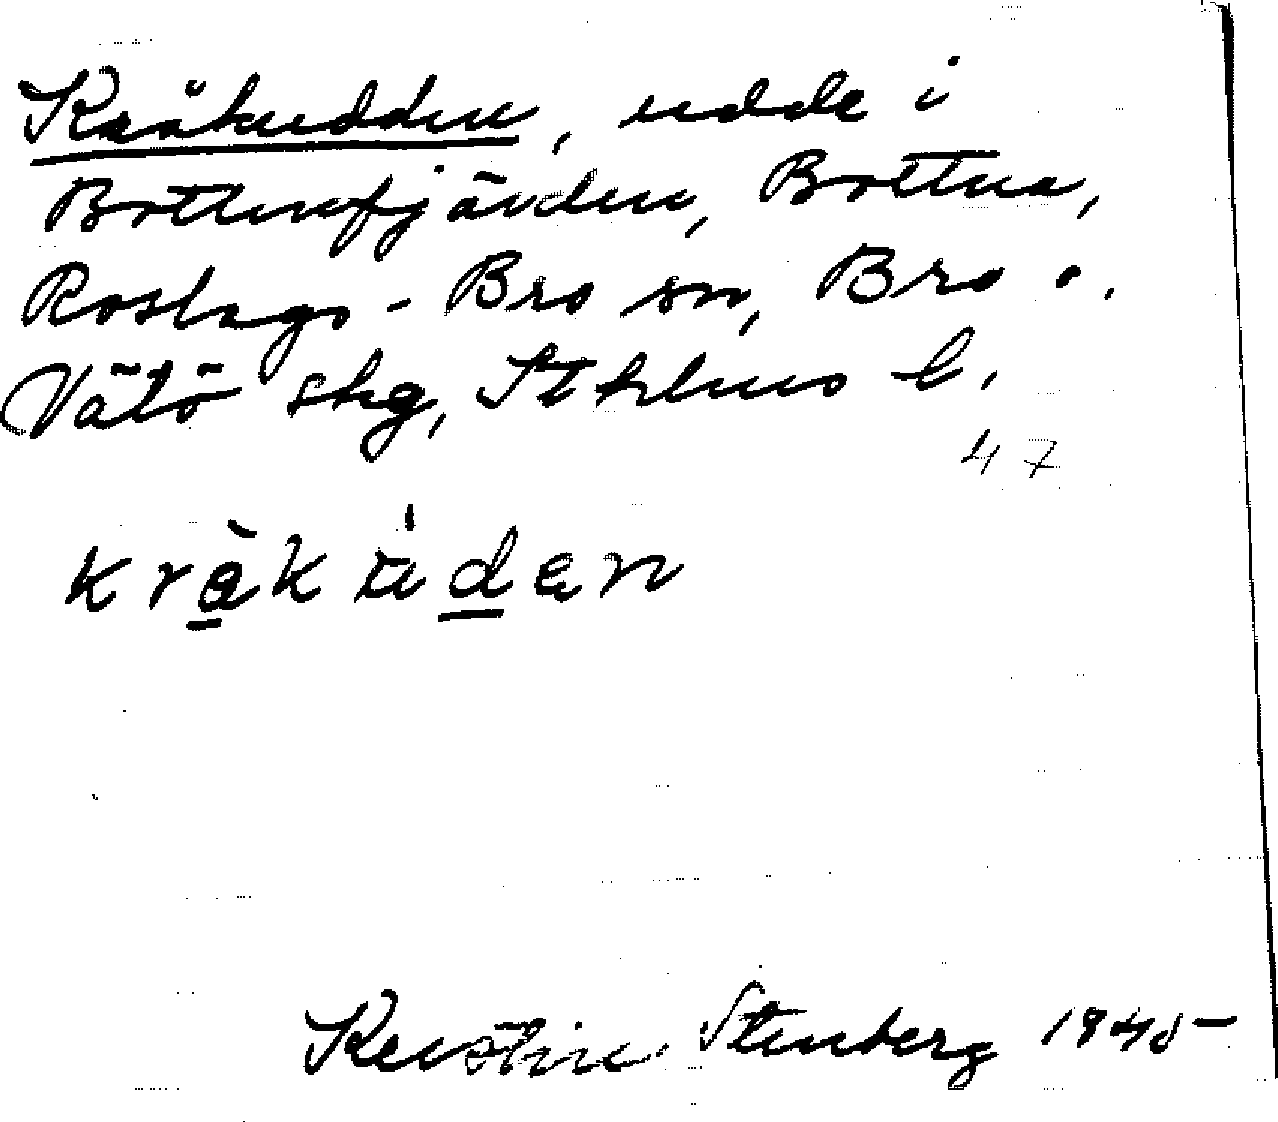 Kråkudden, udde i
Bottenfjärden, Bottna,
Roslags-Bro sn, Bro o.
Vätö skg, Sthlms l.
47
Kerstin Stenberg 1945